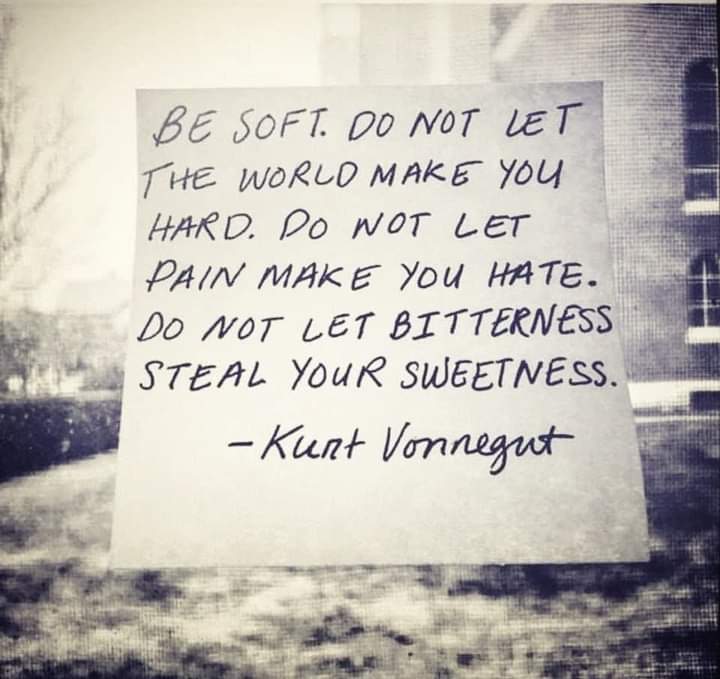 BE SOFT. DO NOT LET
THE WORLD MAKE YOU
HARD. DO NOT LET
PAIN MAKE YOU HATE.
DO NOT LET BITTERNESS
STEAL YOUR SWEETNESS.
-Kurt Vonnegut